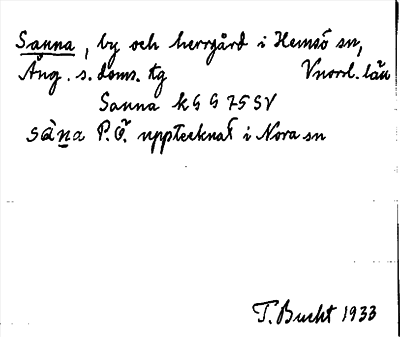 Sanna, by och herrgård i Hemsö sn,
Ång. s. doms. tg Vnorrl. län
Sanna k G G 75 SV
sàna P.Ö. upptecknat i Nora sn
T. Bucht 1933